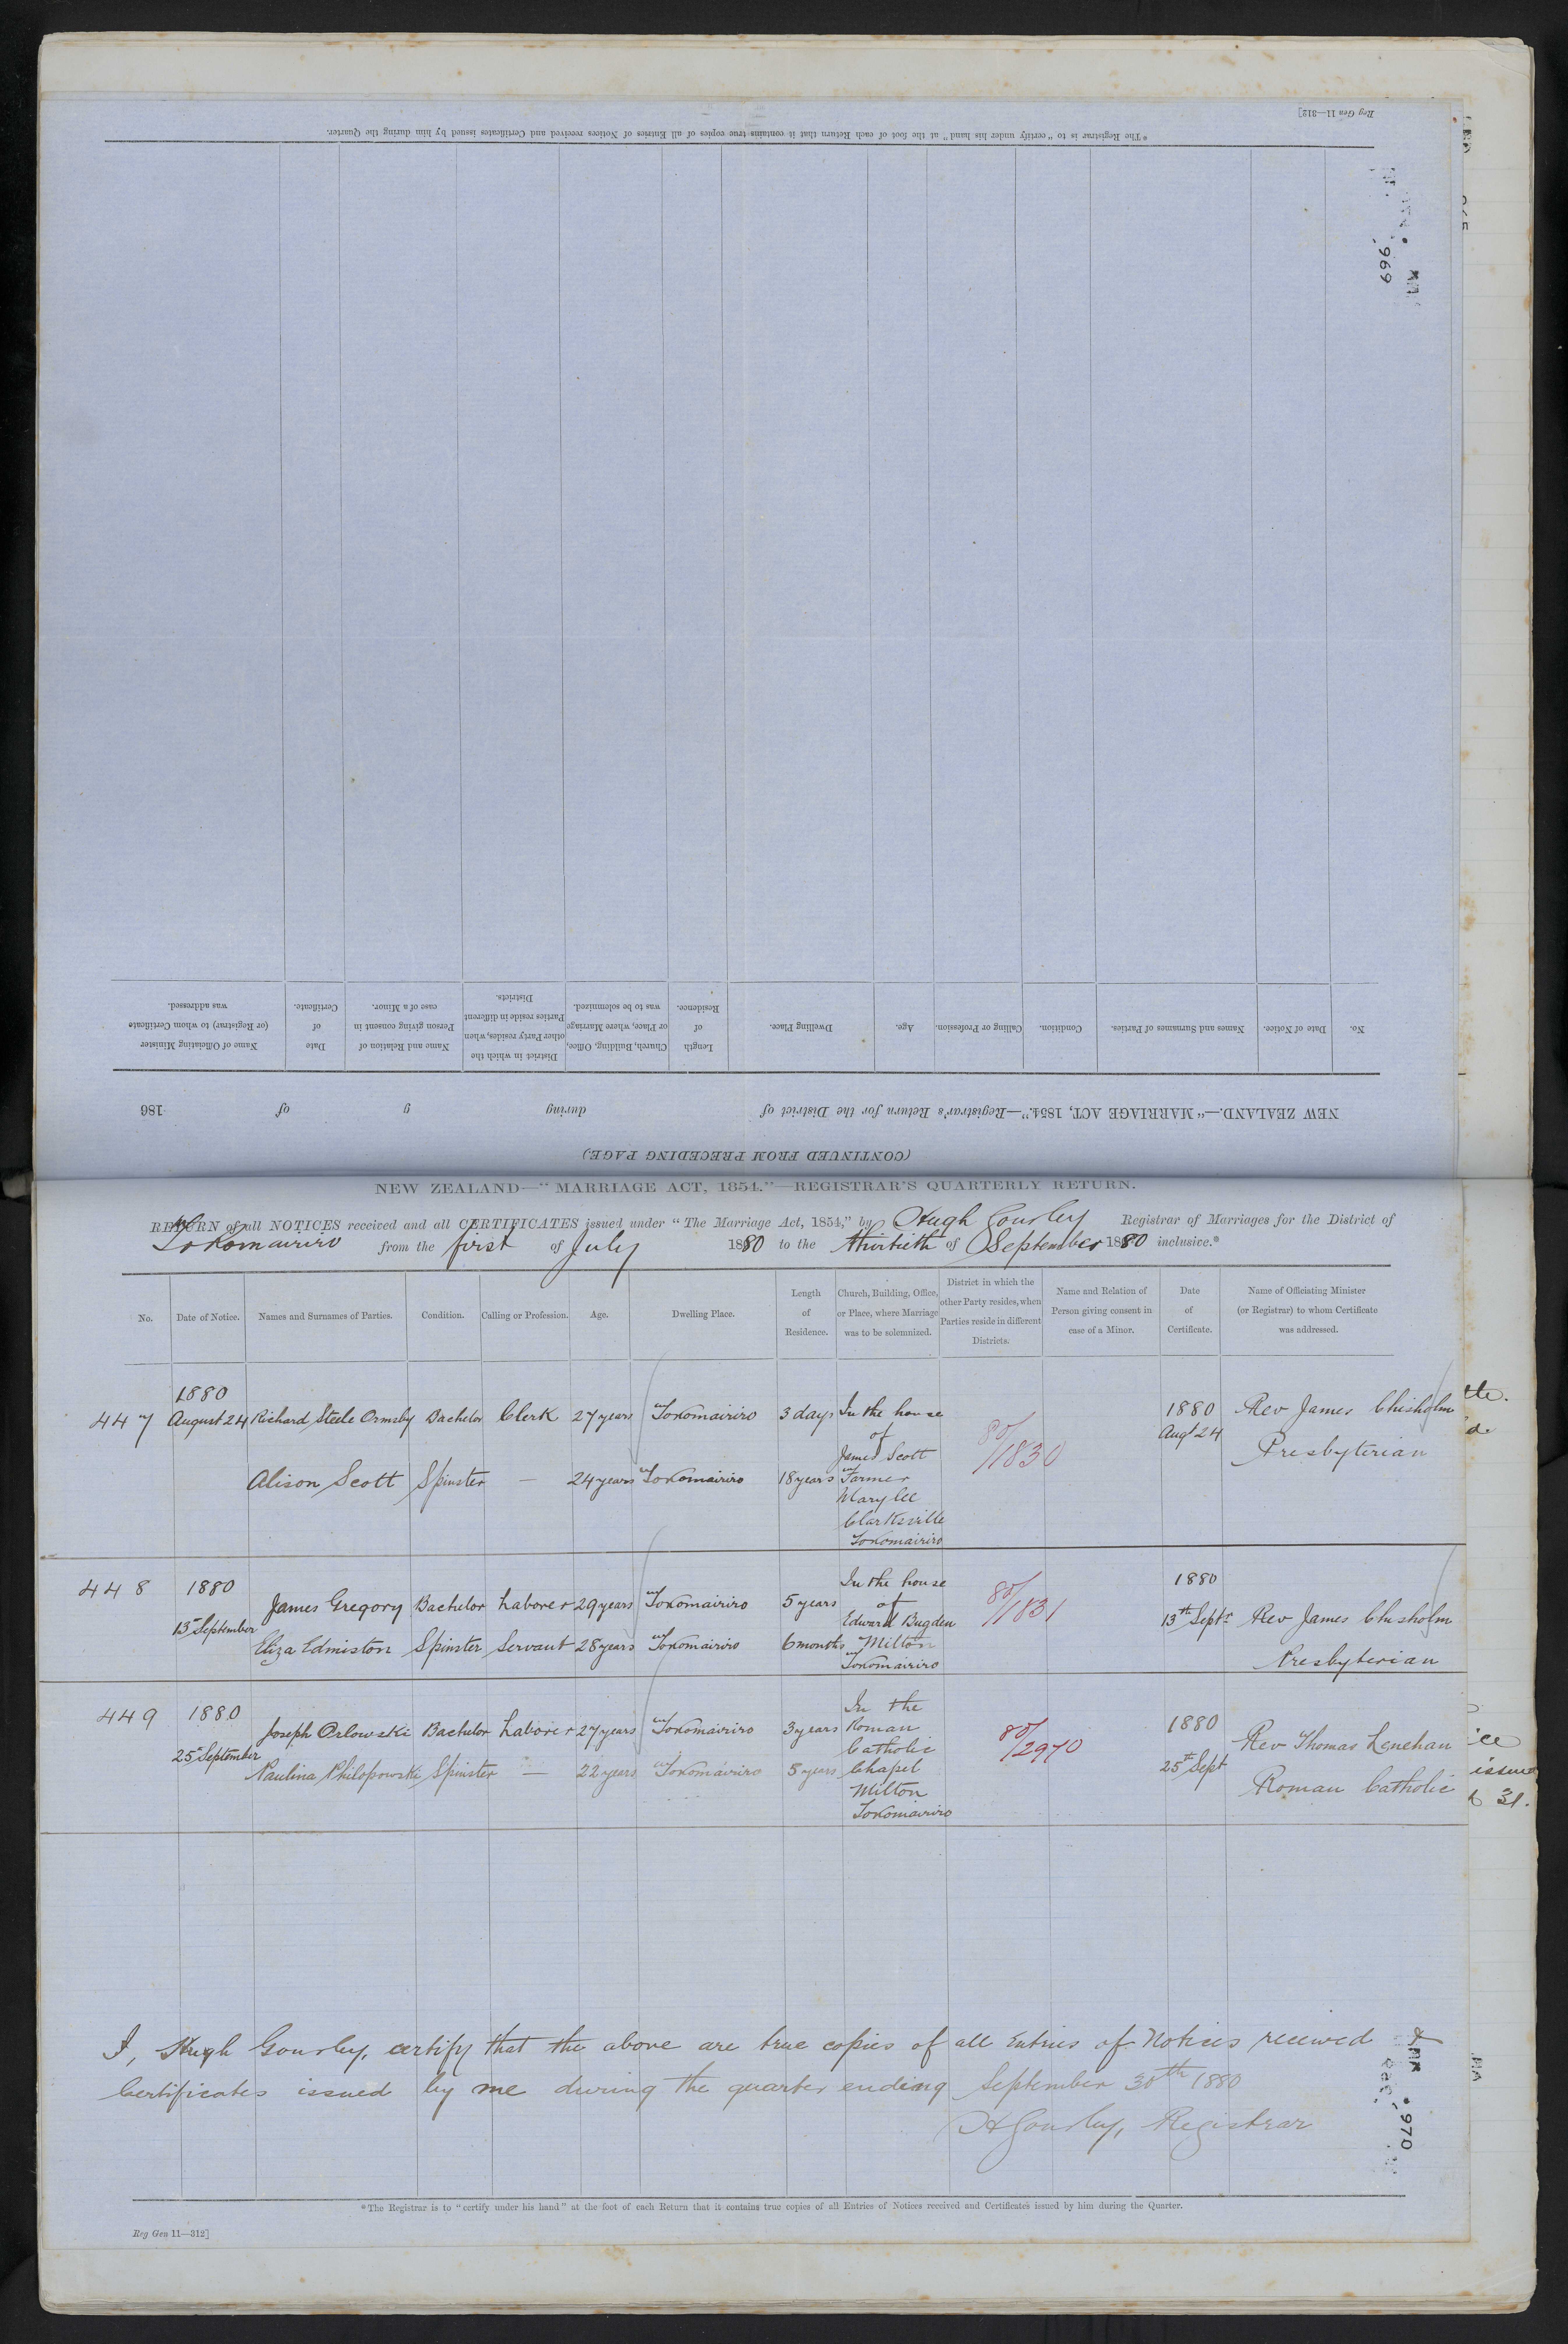 Reg Gen 11—312]
*The Registrar is to "certify under his hand" at the foot of each Return that it contains true copies of all Entries of Notices received and Certificates issued by him during the Quarter.
969
No.
Date of Notice.
Names and Surnames of Parties.
Condition.
Calling or Profession.
Age.
Dwelling Place.
Length
of
Residence.
Church, Building, Office,
or Place, where Marriage
was to be solemnized.
District in which the
other Party resides, when
Parties reside in different
Districts.
Name and Relation of
Person giving consent in
case of a Minor.
Date
of
Certificate.
Name of Officiating Minister
(or Registrar) to whom Certificate
was addressed.
NEW ZEALAND.—"MARRIAGE ACT, 1854."—Registrar's Return for the District of during y of 186
(CONTINUED FROM PRECEDING PAGE)
NEW ZEALAND—"MARRIAGE ACT, 1854."—REGISTRAR'S QUARTERLY RETURN.
RETURN of all NOTICES received and all CERTIFICATES issued under "The Marriage Act, 1854," by Hugh Gourley Registrar of Marriages for the District of
Tokomairiro from the first of July 1880 to the thirtieth of September 1880 inclusive.*
No.
Date of Notice.
Names and Surnames of Parties.
Condition.
Calling or Profession.
Age.
Dwelling Place.
Length
of
Residence.
Church, Building, Office,
or Place, where Marriage
was to be solemnized.
District in which the
other Party resides, when
Parties reside in different
Districts.
Name and Relation of
Person giving consent in
case of a Minor.
Date
of
Certificate.
Name of Officiating Minister
(or Registrar) to whom Certificate
was addressed.
447
1880
August 24
Richard Steele Ormsby Bachelor Clerk 27 years Tokomairiro 3 days
Alison Scott Spinster — 24 years Tokomairiro 18 years
In the house
of
James Scott
Farmer
Clarksville
Tokomairiro
80/
/1830
1880
Augt 24
Rev James Chisholm
Presbyterian
448
1880
13th September
James Gregory Bachelor Laborer 29 years Tokomairiro 5 years
Eliza Edmiston Spinster Servant 28 years Tokomairiro 6 months
In the house
of
Edward Bugden
Milton
Tokomairiro
80/
/1831
1880
13th Septr
Rev James Chisholm
Presbyterian
449
1880
25th September
Joseph Orlowski Bachelor Laborer 27 years Tokomairiro 3 years
Paulina Philopowski Spinster — 22 years Tokomairiro 5 years
In the
Roman
Catholic
Chapel
Milton
Tokomairiro
80/
/2970
1880
25th Sept
Rev Thomas Lenehan
Roman Catholic
issued
31.
I, Hugh Gourley, certify that the above are true copies of all Entries of Notices received &
Certificates issued by me during the quarter ending September 30th 1880
H Gourley, Registrar
970
*The Registrar is to "certify under his hand" at the foot of each Return that it contains true copies of all Entries of Notices received and Certificates issued by him during the Quarter.
Reg Gen 11—312]